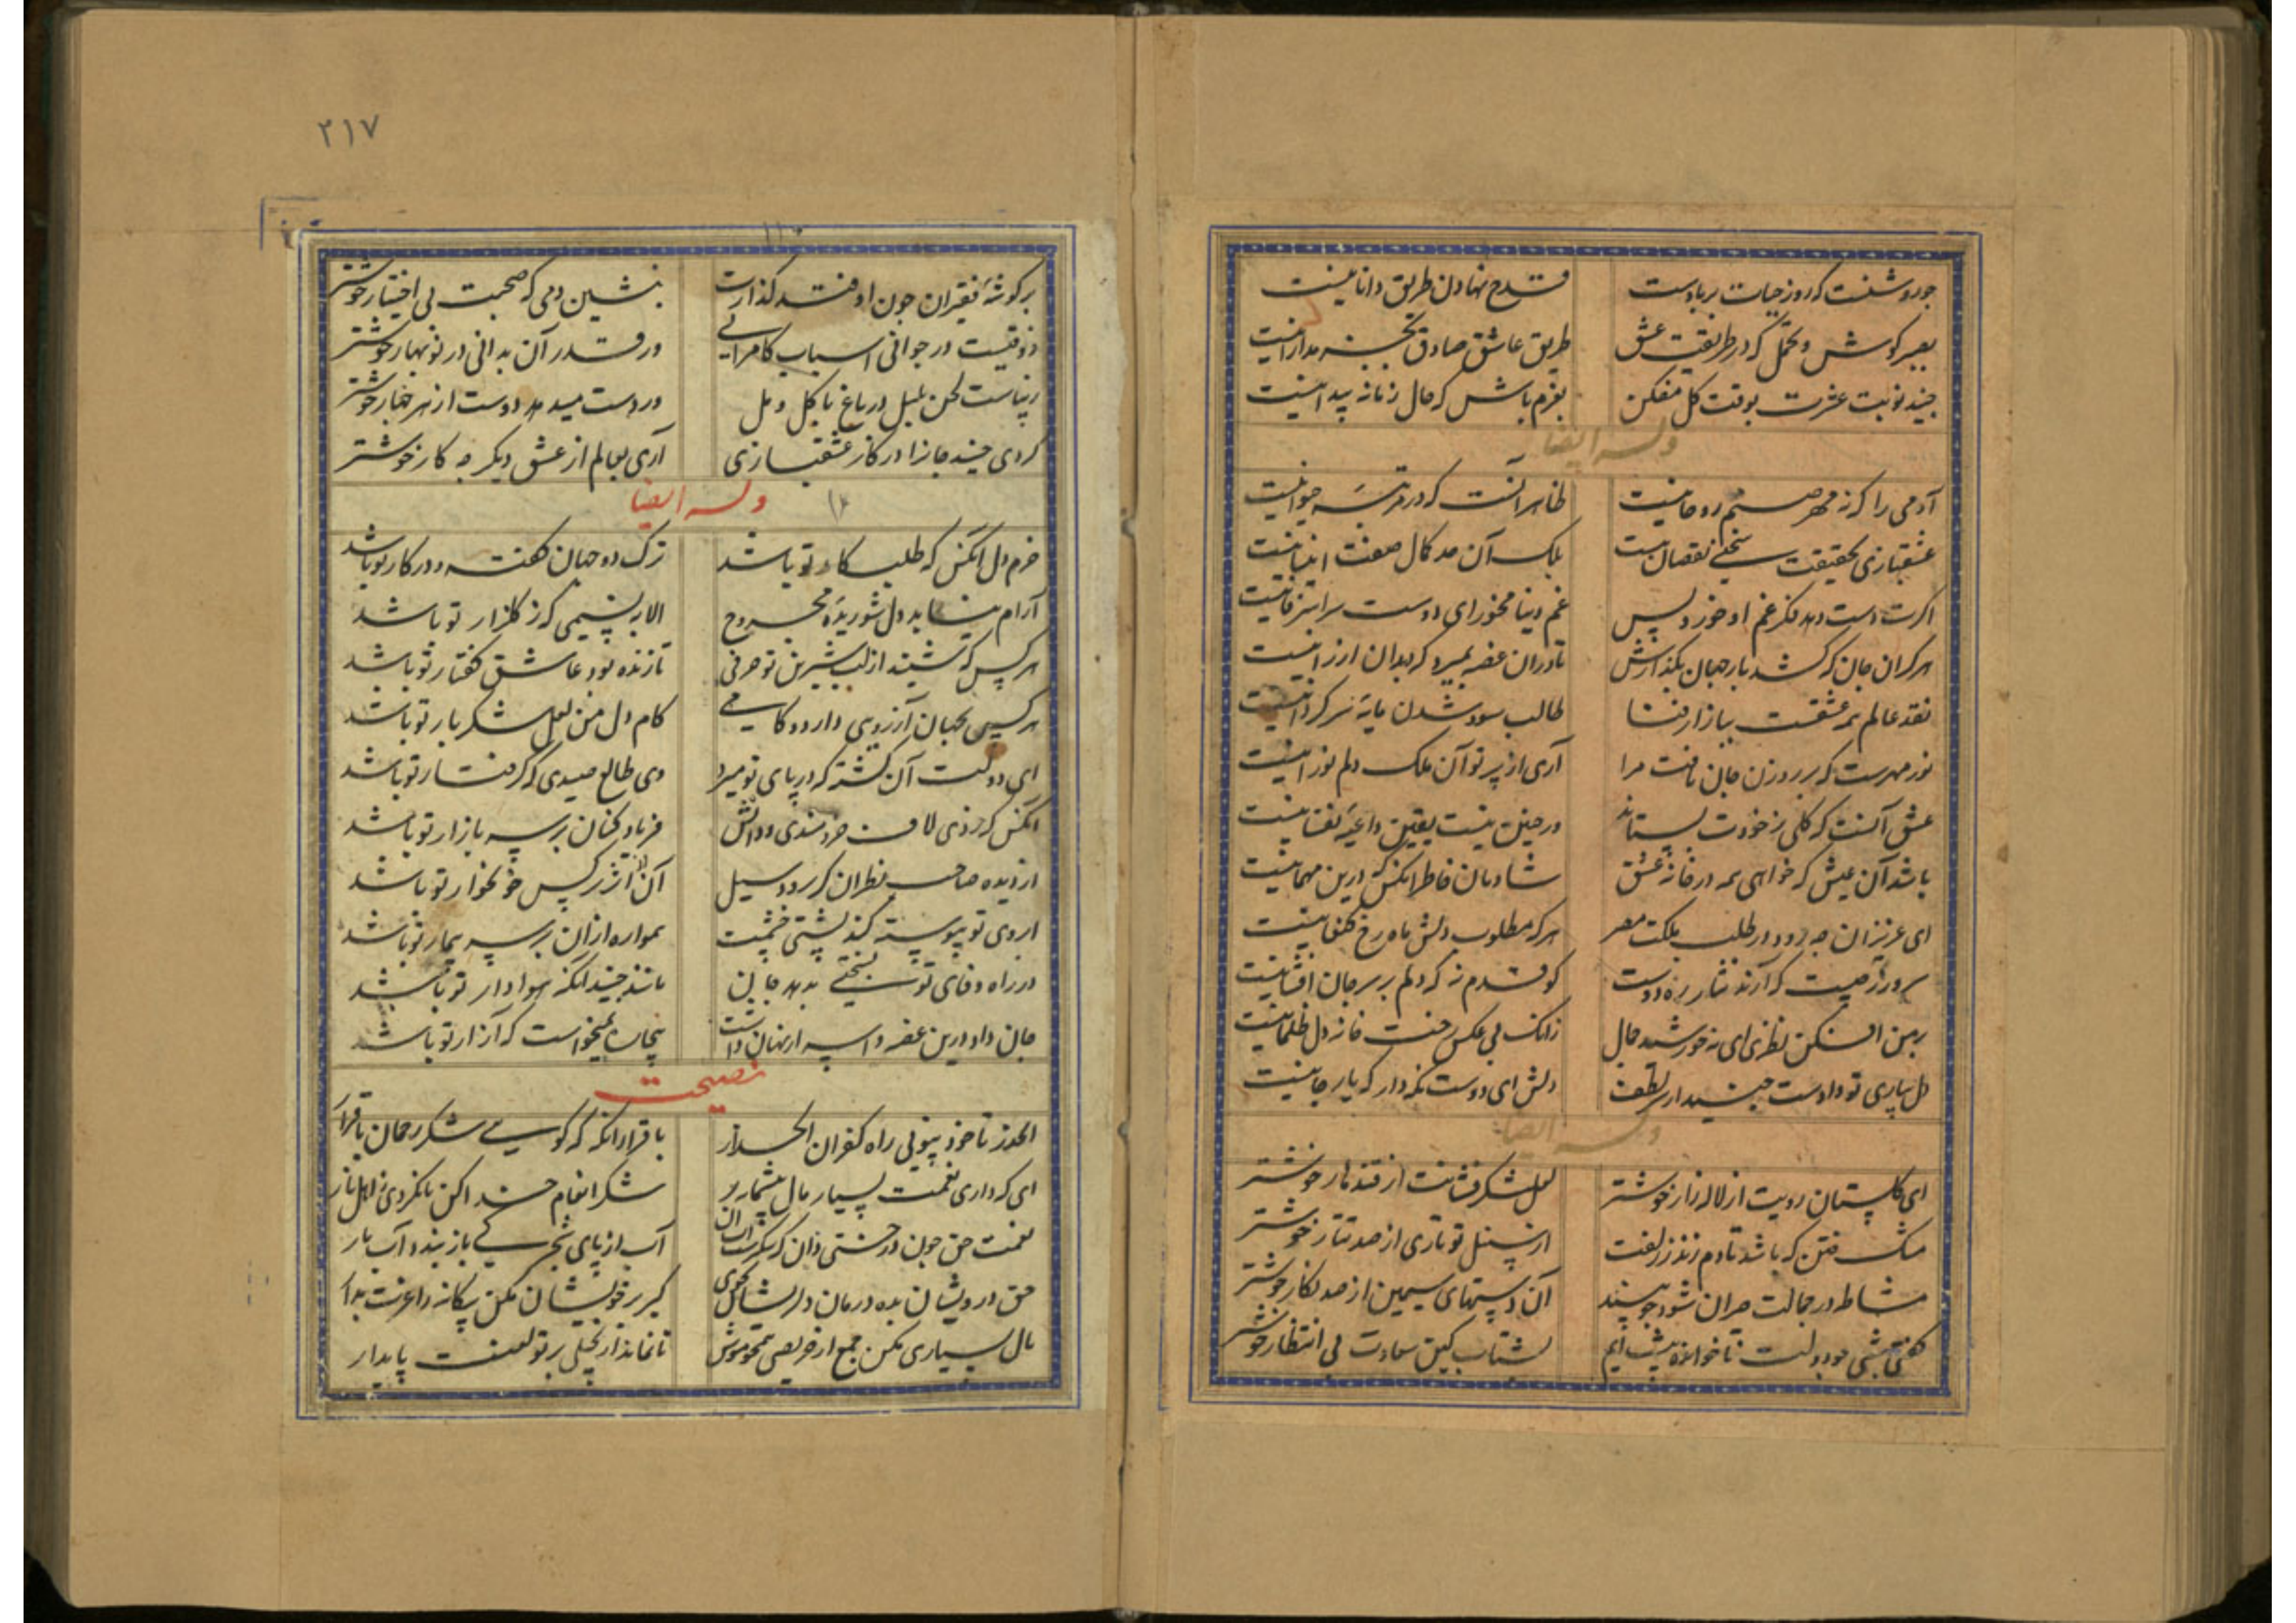 چو روشنست که روز حیات بر بادست
قدح نهادن طریق دانا نیست
بصبر کوش و تحمل که در طریقت عشق
طریق عاشق صادق بجز مدارا نیست
جنید نوبت عشرت بوقت گل مفکن
بغرم باش که حال زمانه پیدا نیست
وله ایضا
آدمی را که ز مهر صنم روحانیست
ظاهر آنست که در مرتبه حیوانیست
عشقبازی بحقیقت سخنی نقصان نیست
بلک آن صد کمال صفت انسانیست
اگرت دست دهد فکر غم او خور و بس
غم دنیا مخور ای دوست سراسر فانیست
هر گران جان که کشد بار جهان بگذارش
تا در آن غصه بمیرد که بدان ارزانیست
نقد عالم همه عشقست ببازار فنا
طالب سود شدن مایه سرگردانیست
نور مهرست که بر روزن جان تافت مرا
آری از پرتو آن ملک دلم نورانیست
عشق آنست که کلی ز خودت بستاند
ور چنین نیست یقین داعیه نفسانیست
باشد آن عیش که خواهی همه در خانه عشق
شادمان خاطر آنکس که درین مهمانیست
ای عزیزان چه رود در طلب ملکت مصر
هر که مطلوب دلش ماه رخ کنعانیست
سر و زر چیست که آرند نثار ره دوست
کو قدم نه که دلم بر سر جان افشانیست
بر من افکن نظری ای مه خورشید جمال
زانک بی عکس رخت خانه دل ظلمانیست
دل بیاری تو دادست جنید از سر لطف
دلش ای دوست نگه دار که یار جانیست
وله ایضا
ای گلستان رویت از لاله زار خوشتر
لعل شکر فشانت از قندهار خوشتر
مشک ختن که باشد تا دم زند ز زلفت
از سنبل تو تاری از صد تتار خوشتر
مشاطه در جمالت حیران شود چو بیند
آن دستهای سیمین از صد نگار خوشتر
گفتی بشی چو دولت ناخوانده پیشت آیم
بشتاب کین سعادت بی انتظار خوشتر
۲۱۷
بر گوشه فقیران چون اوفتد گذارت
بنشین دمی که صحبت بی اختیار خوشتر
ذوقیست در جوانی اسباب کامرانی
ور قدر آن بدانی در نوبهار خوشتر
زیباست لحن بلبل در باغ با گل و مل
ور دست میدهد دوست از هر چهار خوشتر
کردی جنید جانرا در کار عشقبازی
آری بعالم از عشق دیگر چه کار خوشتر
وله ایضا
خرم دل آنکس که طلبکار تو باشد
ترک دو جهان گفته و در کار تو باشد
آرام نیابد دل شوریده مجروح
الا به نسیمی که ز گلزار تو باشد
هر کس که شنید از لب شیرین تو حرفی
تا زنده بود عاشق گفتار تو باشد
هر کسی بجهان آرزوی دارد و کامی
کام دل من لعل شکربار تو باشد
ای دولت آن کشته که در پای تو میرد
وی طالع صیدی که گرفتار تو باشد
آنکس که زدی لاف خردمندی و دانش
فریاد کنان بر سر بازار تو باشد
از دیده صاحب نظران گر برود سیل
آن از اثر نرگس خونخوار تو باشد
ابروی تو پیوسته کند پشتی چشمت
همواره از آن بر سر بیمار تو باشد
در راه وفای تو بسختی بدهد جان
مانند جنید آنکه هوادار تو باشد
جان داد درین غصه و اسرار نهان داشت
بیچاره نمیخواست که آزار تو باشد
نصیحت
الحذر تا خود نپویی راه کفران الحذار
با قرار آنگه که گویی شکر رحمان با قرار
ای که داری نعمت بسیار مال بیشمار
شکر انعام خداکن تا نگردی ز اهل نار
نعمت حق چون درختی دان که شکرست آب آن
آب از پای شجر کی باز بندد آب یار
حق درویشان بده درمان دلریشان بجوی
کبر بر خویشان مکن بیگانه را عزت بدار
مال بسیاری مکن جمع از حریصی همچو موش
تا نماند از بخیلی بر تو لعنت پایدار